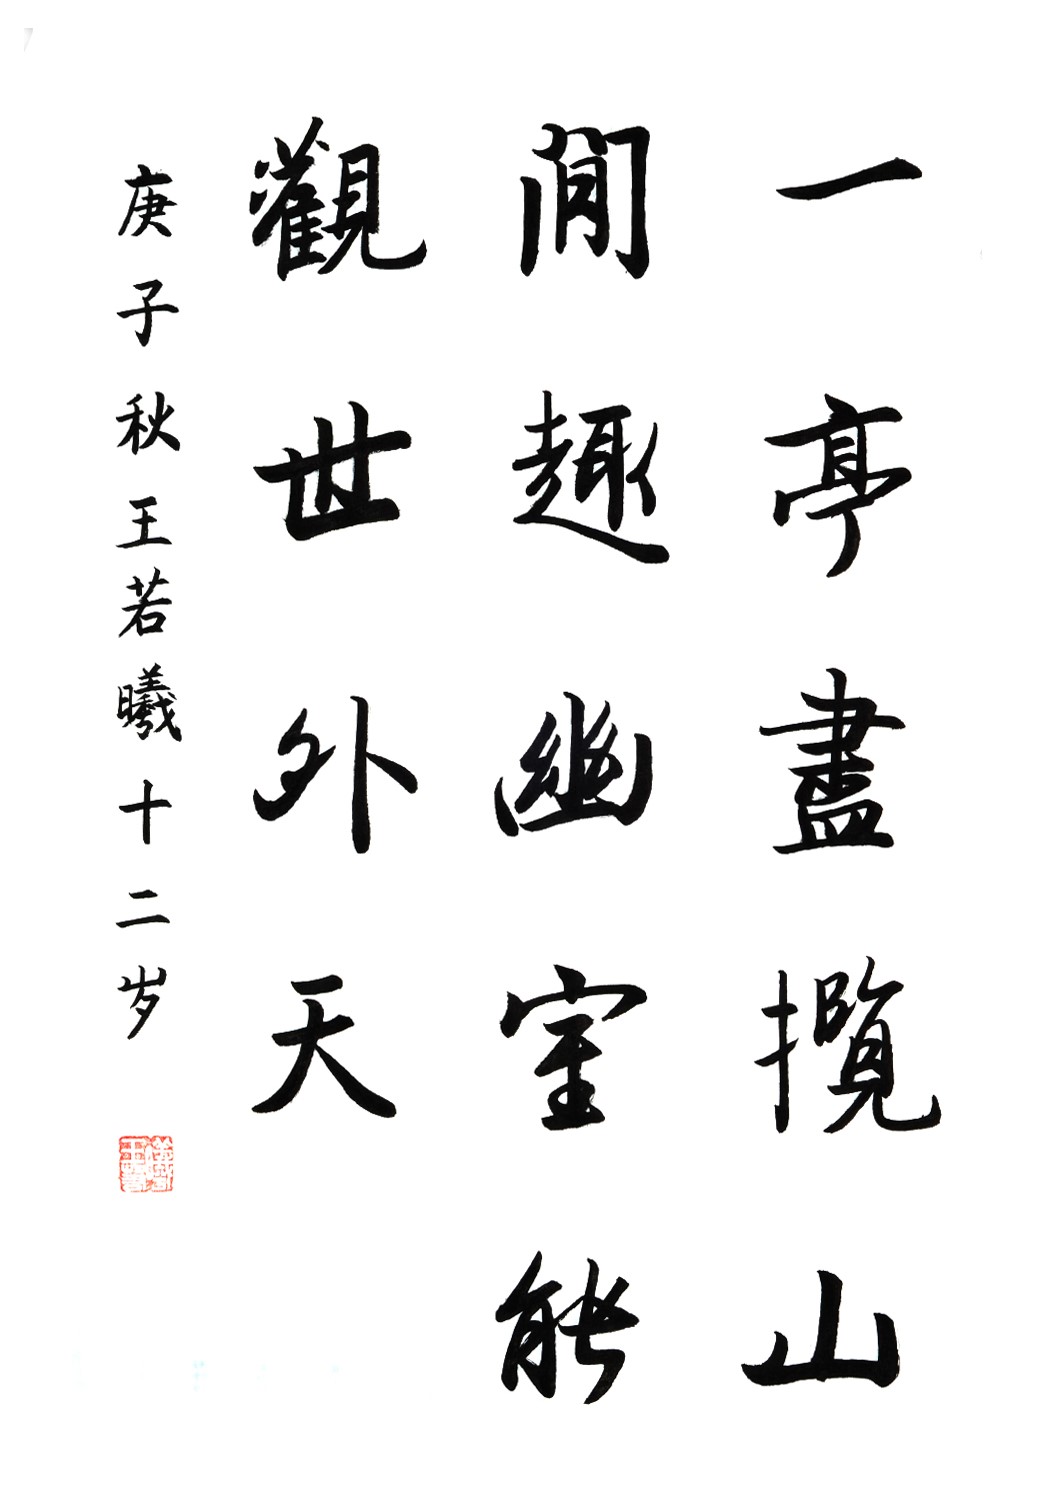 一亭盡攬山
間趣幽室能
觀世外天
庚子秋王若曦十二岁